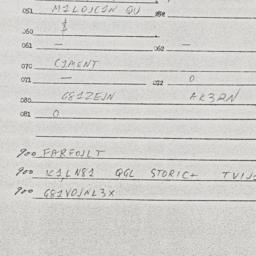 051 M1LOJC1N QU 052
060 $
061 — 062 —
070 C1AENT
071 — 072 0
080 G81ZEJN AK3RN
081 0
900 FARFOJLT
900 K1,LN81 QGL STORIC+ TVIJ
900 G81VOJNL3X